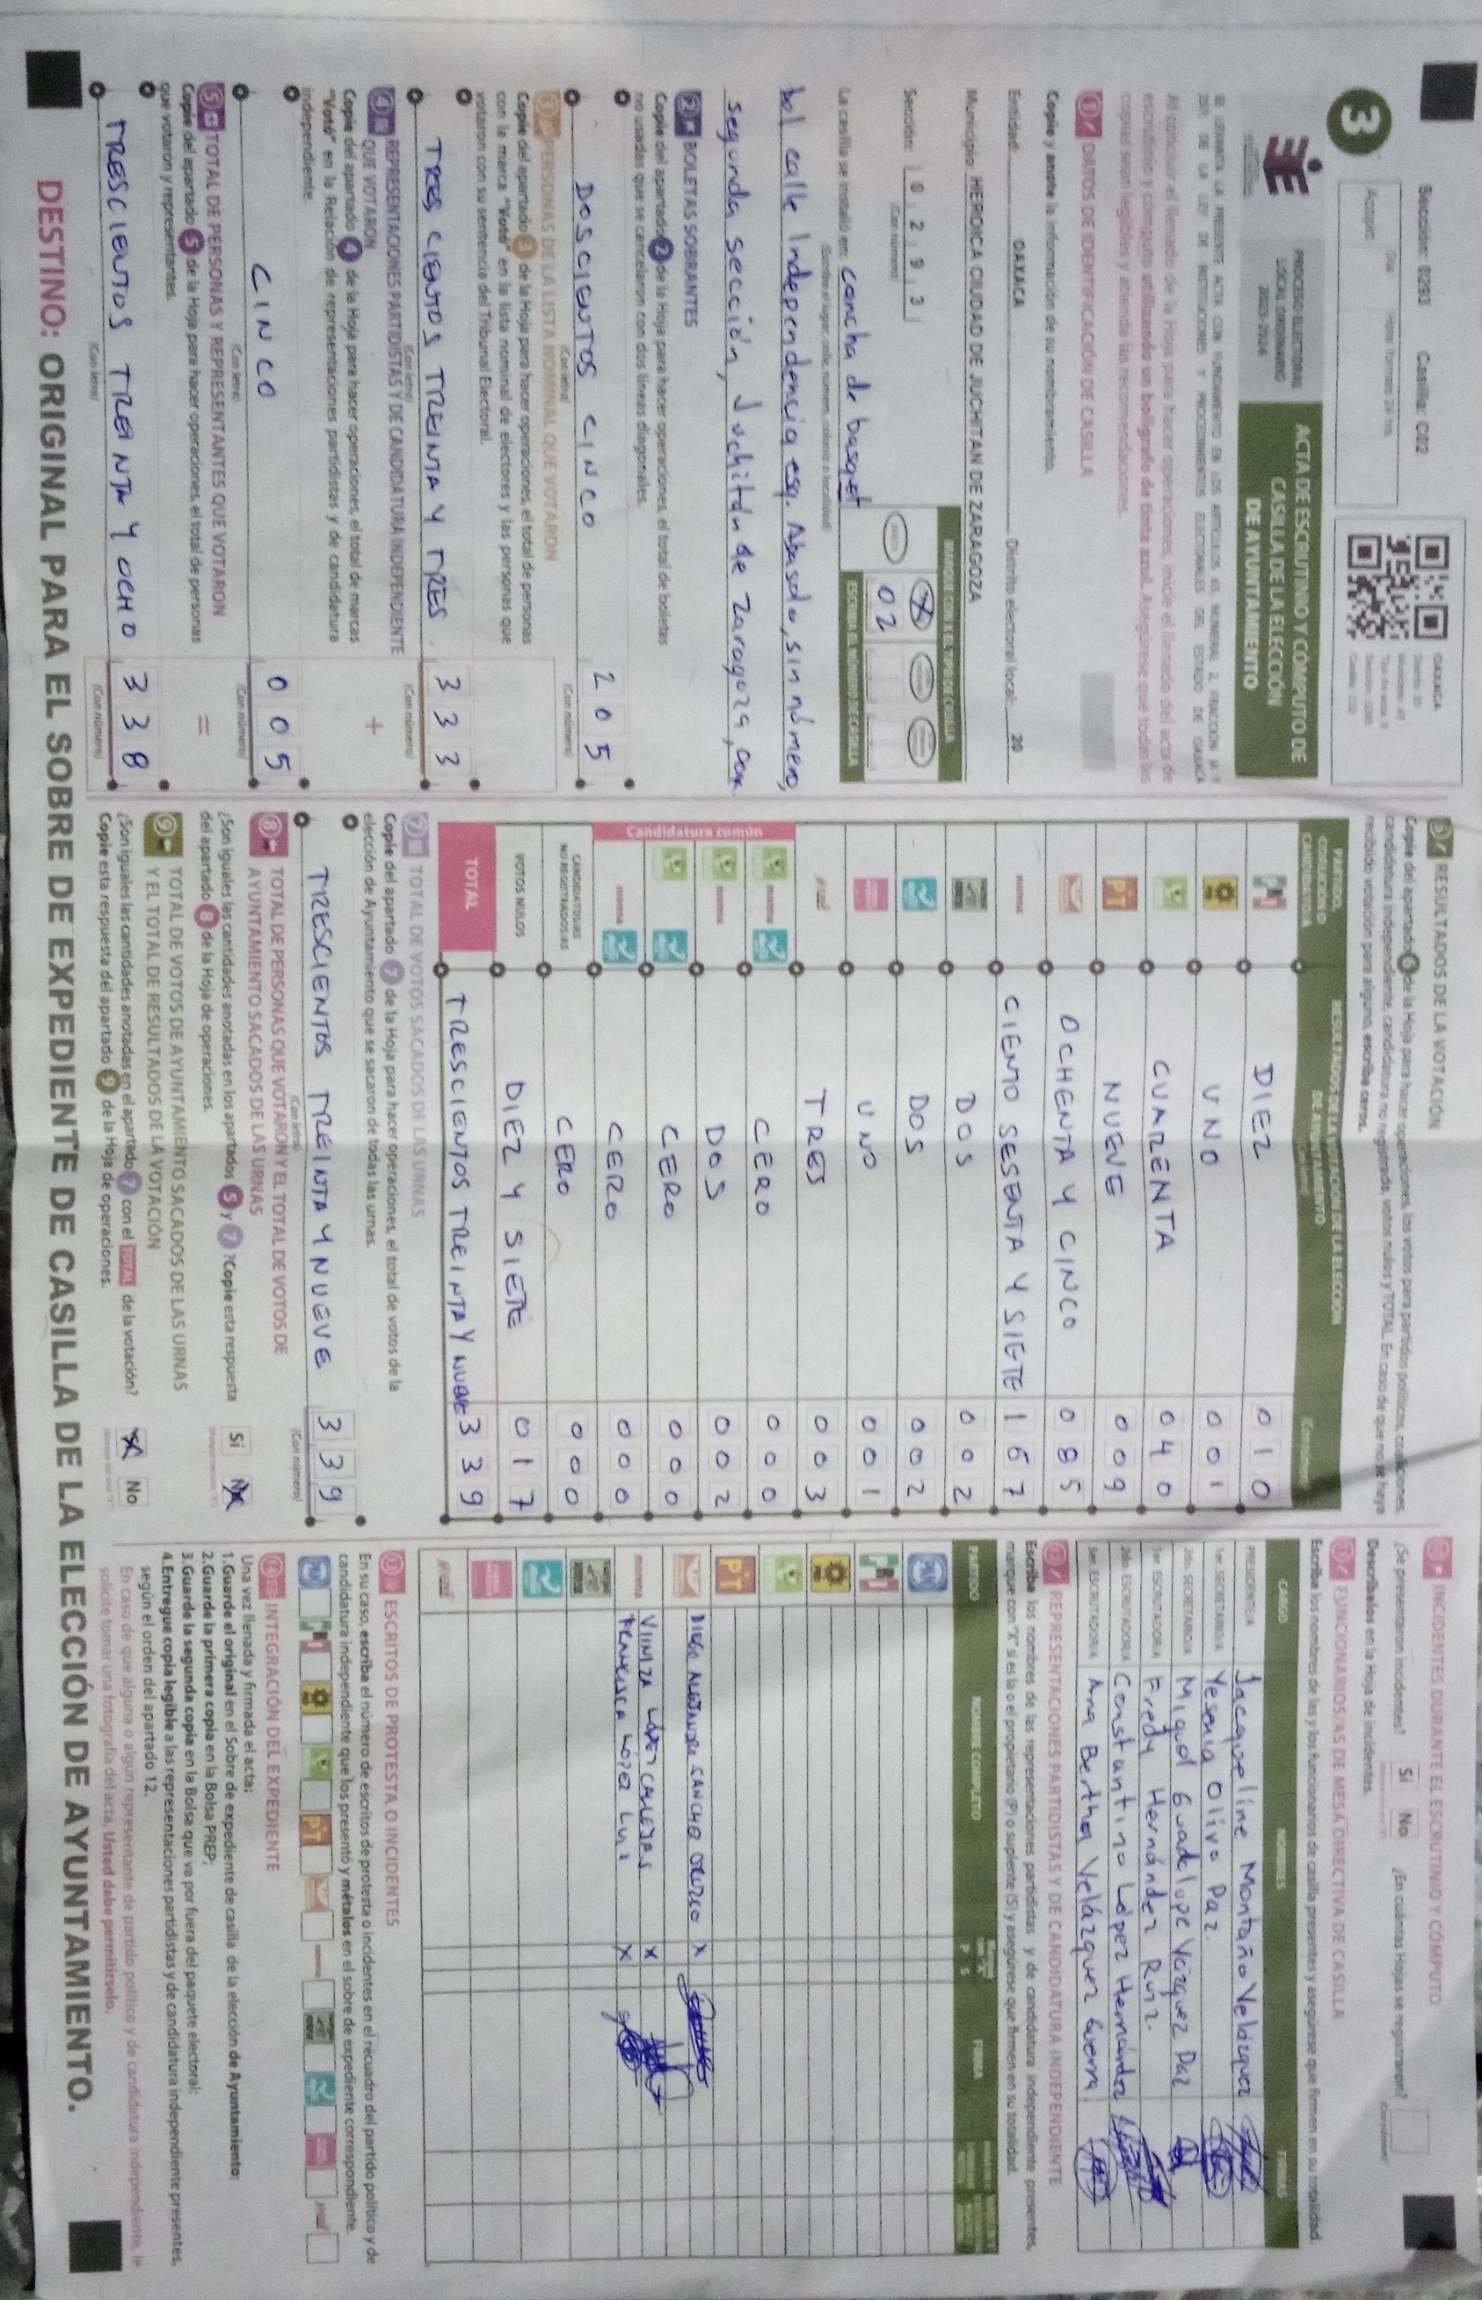 Sección: 0293 Casilla: C02
3
Acopio:
OAXACA
PROCESO ELECTORAL
LOCAL ORDINARIO
2023-2024
ACTA DE ESCRUTINIO Y CÓMPUTO DE
CASILLA DE LA ELECCIÓN
DE AYUNTAMIENTO
Al concluir el llenado de la Hoja para hacer operaciones, inicie el llenado del acta de
escrutinio y cómputo utilizando un bolígrafo de tinta azul. Asegúrese que todas las
copias sean legibles y atienda las recomendaciones.
1 DATOS DE IDENTIFICACIÓN DE CASILLA
Copie y anote la información de su nombramiento.
Entidad: OAXACA Distrito electoral local: 20
Municipio: HEROICA CIUDAD DE JUCHITAN DE ZARAGOZA
Sección: 0 2 9 3
(Con número)
MARQUE CON X EL TIPO DE CASILLA
X
ESCRIBA EL NÚMERO DE CASILLA
02
La casilla se instaló en: Cancha de basquet
bol calle Independencia esq. Abasolo, sin número,
segunda sección, Juchitán de Zaragoza, oax
2 BOLETAS SOBRANTES
Copie del apartado 2 de la Hoja para hacer operaciones, el total de boletas
no usadas que se cancelaron con dos líneas diagonales.
DOSCIENTOS CINCO 2 0 5
(Con letra) (Con número)
3 PERSONAS DE LA LISTA NOMINAL QUE VOTARON
Copie del apartado 3 de la Hoja para hacer operaciones, el total de personas
con la marca "Votó" en la lista nominal de electores y las personas que
votaron con su sentencia del Tribunal Electoral.
TRES CIENTOS TREINTA Y TRES 3 3 3
(Con letra) (Con número)
4 REPRESENTACIONES PARTIDISTAS Y DE CANDIDATURA INDEPENDIENTE
QUE VOTARON +
Copie del apartado 4 de la Hoja para hacer operaciones, el total de marcas
"Votó" en la Relación de representaciones partidistas y de candidatura
independiente.
CINCO 0 0 5
(Con letra) (Con número)
5 TOTAL DE PERSONAS Y REPRESENTANTES QUE VOTARON
Copie del apartado 5 de la Hoja para hacer operaciones, el total de personas =
que votaron y representantes.
TRESCIENTOS TREINTA Y OCHO 3 3 8
(Con letra) (Con número)
RESULTADOS DE LA VOTACIÓN
Copie del apartado 6 de la Hoja para hacer operaciones, los votos para partidos políticos, coaliciones,
candidatura independiente, candidatura no registrada, votos nulos y TOTAL. En caso de que no se haya
recibido votación para alguno, escriba ceros.
RESULTADOS DE LA VOTACIÓN DE LA ELECCIÓN
DE AYUNTAMIENTO
DIEZ 0 1 0
UNO 0 0 1
CUARENTA 0 4 0
PT NUEVE 0 0 9
OCHENTA Y CINCO 0 8 5
morena CIENTO SESENTA Y SIETE 1 6 7
DOS 0 0 2
DOS 0 0 2
UNO 0 0 1
TRES 0 0 3
Candidatura común
morena CERO 0 0 0
morena DOS 0 0 2
CERO 0 0 0
morena CERO 0 0 0
CANDIDATOS/AS
NO REGISTRADOS/AS CERO 0 0 0
VOTOS NULOS DIEZ Y SIETE 0 1 7
TOTAL TRESCIENTOS TREINTA Y NUEVE 3 3 9
7 TOTAL DE VOTOS SACADOS DE LAS URNAS
Copie del apartado 7 de la Hoja para hacer operaciones, el total de votos de la
elección de Ayuntamiento que se sacaron de todas las urnas.
TRESCIENTOS TREINTA Y NUEVE 3 3 9
(Con letra) (Con número)
8 TOTAL DE PERSONAS QUE VOTARON Y EL TOTAL DE VOTOS DE
AYUNTAMIENTO SACADOS DE LAS URNAS
¿Son iguales las cantidades anotadas en los apartados 5 y 7 ?Copie esta respuesta
del apartado 8 de la Hoja de operaciones. Sí No
9 TOTAL DE VOTOS DE AYUNTAMIENTO SACADOS DE LAS URNAS
Y EL TOTAL DE RESULTADOS DE LA VOTACIÓN
¿Son iguales las cantidades anotadas en el apartado 7 con el TOTAL de la votación? X No
Copie esta respuesta del apartado 9 de la Hoja de operaciones.
INCIDENTES DURANTE EL ESCRUTINIO Y CÓMPUTO
¿Se presentaron incidentes? Sí No ¿En cuántas Hojas se registraron?
Descríbalos en la Hoja de incidentes.
FUNCIONARIOS/AS DE MESA DIRECTIVA DE CASILLA
Escriba los nombres de las y los funcionarios de casilla presentes y asegúrese que firmen en su totalidad.
CARGO NOMBRES FIRMAS
PRESIDENTE/A Jacqueline Montaño Velázquez
1er. SECRETARIO/A Yesenia Olivo Paz.
2do. SECRETARIO/A Miguel Guadalupe Vázquez Paz
1er. ESCRUTADOR/A Fredy Hernández Ruiz.
2do. ESCRUTADOR/A Constantino López Hernández
3er. ESCRUTADOR/A Ana Bertha Velázquez Guerra
REPRESENTACIONES PARTIDISTAS Y DE CANDIDATURA INDEPENDIENTE
Escriba los nombres de las representaciones partidistas y de candidatura independiente presentes,
marque con "X" si es la o el propietario (P) o suplente (S) y asegúrese que firmen en su totalidad.
PARTIDO NOMBRE COMPLETO P S FIRMA
PAN
PT
DIEGO ALEJANDRO SANCHO OROZCO X
morena X
FRANCISCA LOPEZ LUIS X
ESCRITOS DE PROTESTA O INCIDENTES
En su caso, escriba el número de escritos de protesta o incidentes en el recuadro del partido político y de
candidatura independiente que los presentó y métalos en el sobre de expediente correspondiente.
INTEGRACIÓN DEL EXPEDIENTE
Una vez llenada y firmada el acta:
1.Guarde el original en el Sobre de expediente de casilla de la elección de Ayuntamiento;
2.Guarde la primera copia en la Bolsa PREP;
3.Guarde la segunda copia en la Bolsa que va por fuera del paquete electoral;
4.Entregue copia legible a las representaciones partidistas y de candidatura independiente presentes,
según el orden del apartado 12.
En caso de que alguna o algún representante de partido político y de candidatura independiente, le
solicite tomar una fotografía del acta, Usted debe permitírselo.
DESTINO: ORIGINAL PARA EL SOBRE DE EXPEDIENTE DE CASILLA DE LA ELECCIÓN DE AYUNTAMIENTO.